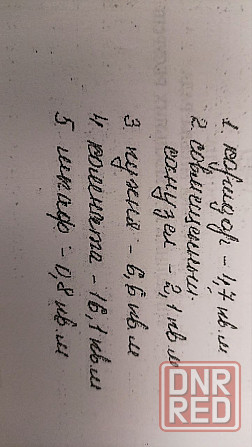 1. коридор - 4,7 кв.м
2. совмещенный
санузел - 2,1 кв м
3. кухня - 6,6 кв м
4. комната - 16,1 кв м
5. шкаф - 0,8 кв.м
DNR
RED